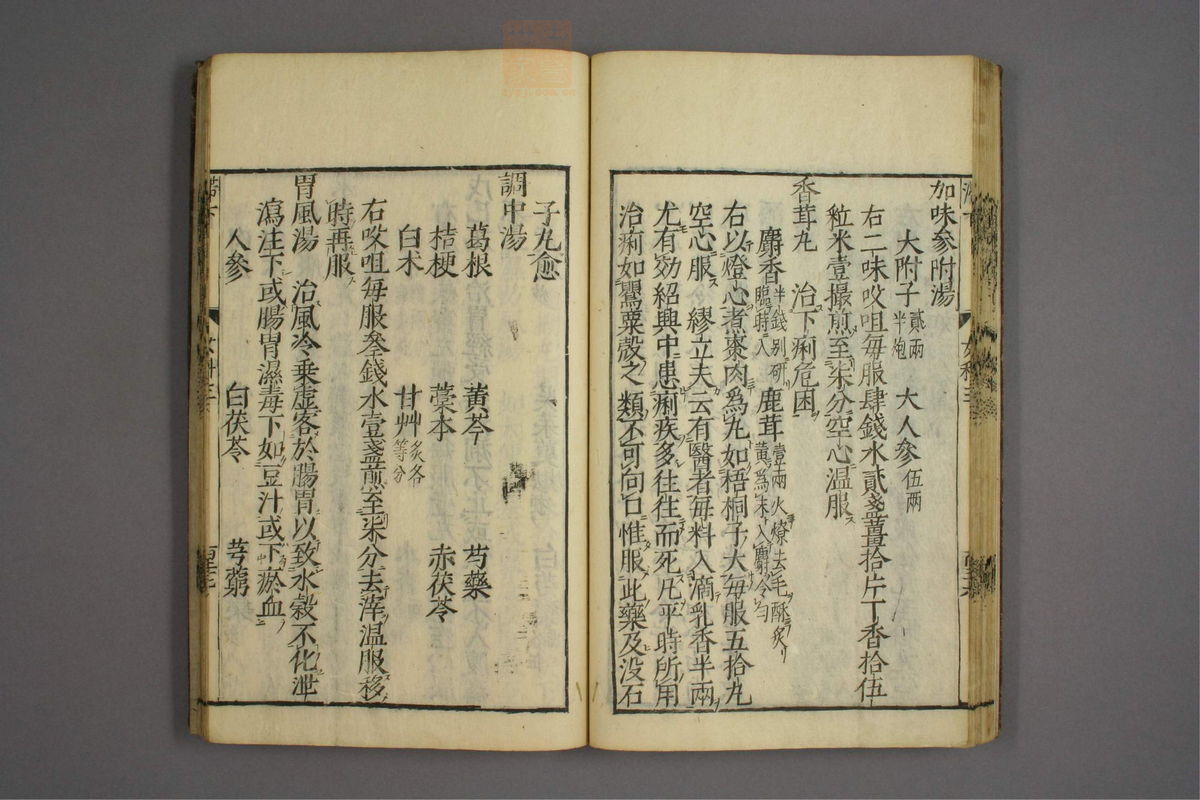 加味參附湯
大附子貳兩半炮 大人參伍兩
右二味㕮咀每服肆錢水貳盞薑拾片丁香拾伍
粒米壹撮煎至柒分空心温服
香茸丸 治下痢危困
麝香半錢別研臨時入 鹿茸壹兩火燎去毛酥炙黄爲末入麝令勻
右以燈心煮棗肉爲丸如梧桐子大每服五拾丸
空心服 繆立夫云有醫者每料入滴乳香半兩
尤有効紹興中患痢疾多往往而死凡平時所用
治痢如罌粟殼之類不可向口惟服此藥及没石
子丸愈
調中湯
葛根 黄芩 芍藥
桔梗 藁本 赤茯苓
白术 甘艸炙各等分
右㕮咀每服叄錢水壹盞煎至柒分去滓温服移
時再服
胃風湯 治風冷乘虚客於腸胃以致水穀不化泄
瀉注下或腸胃濕毒下如豆汁或下瘀血
人參 白茯苓 芎藭